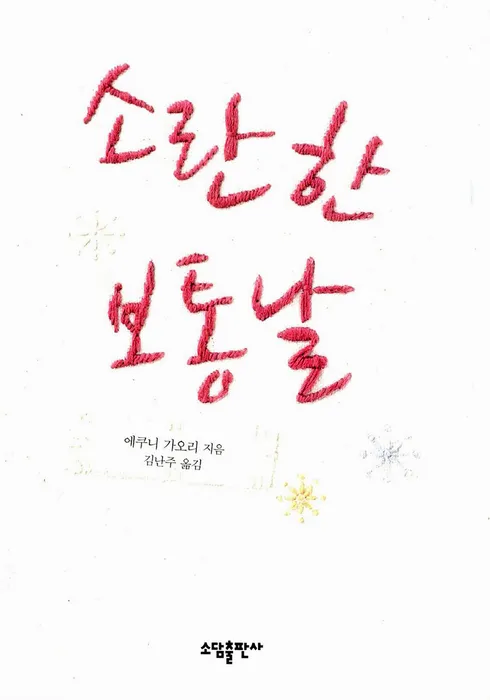 소란한
보통날
에쿠니 가오리 지음
김난주 옮김
소담출판사